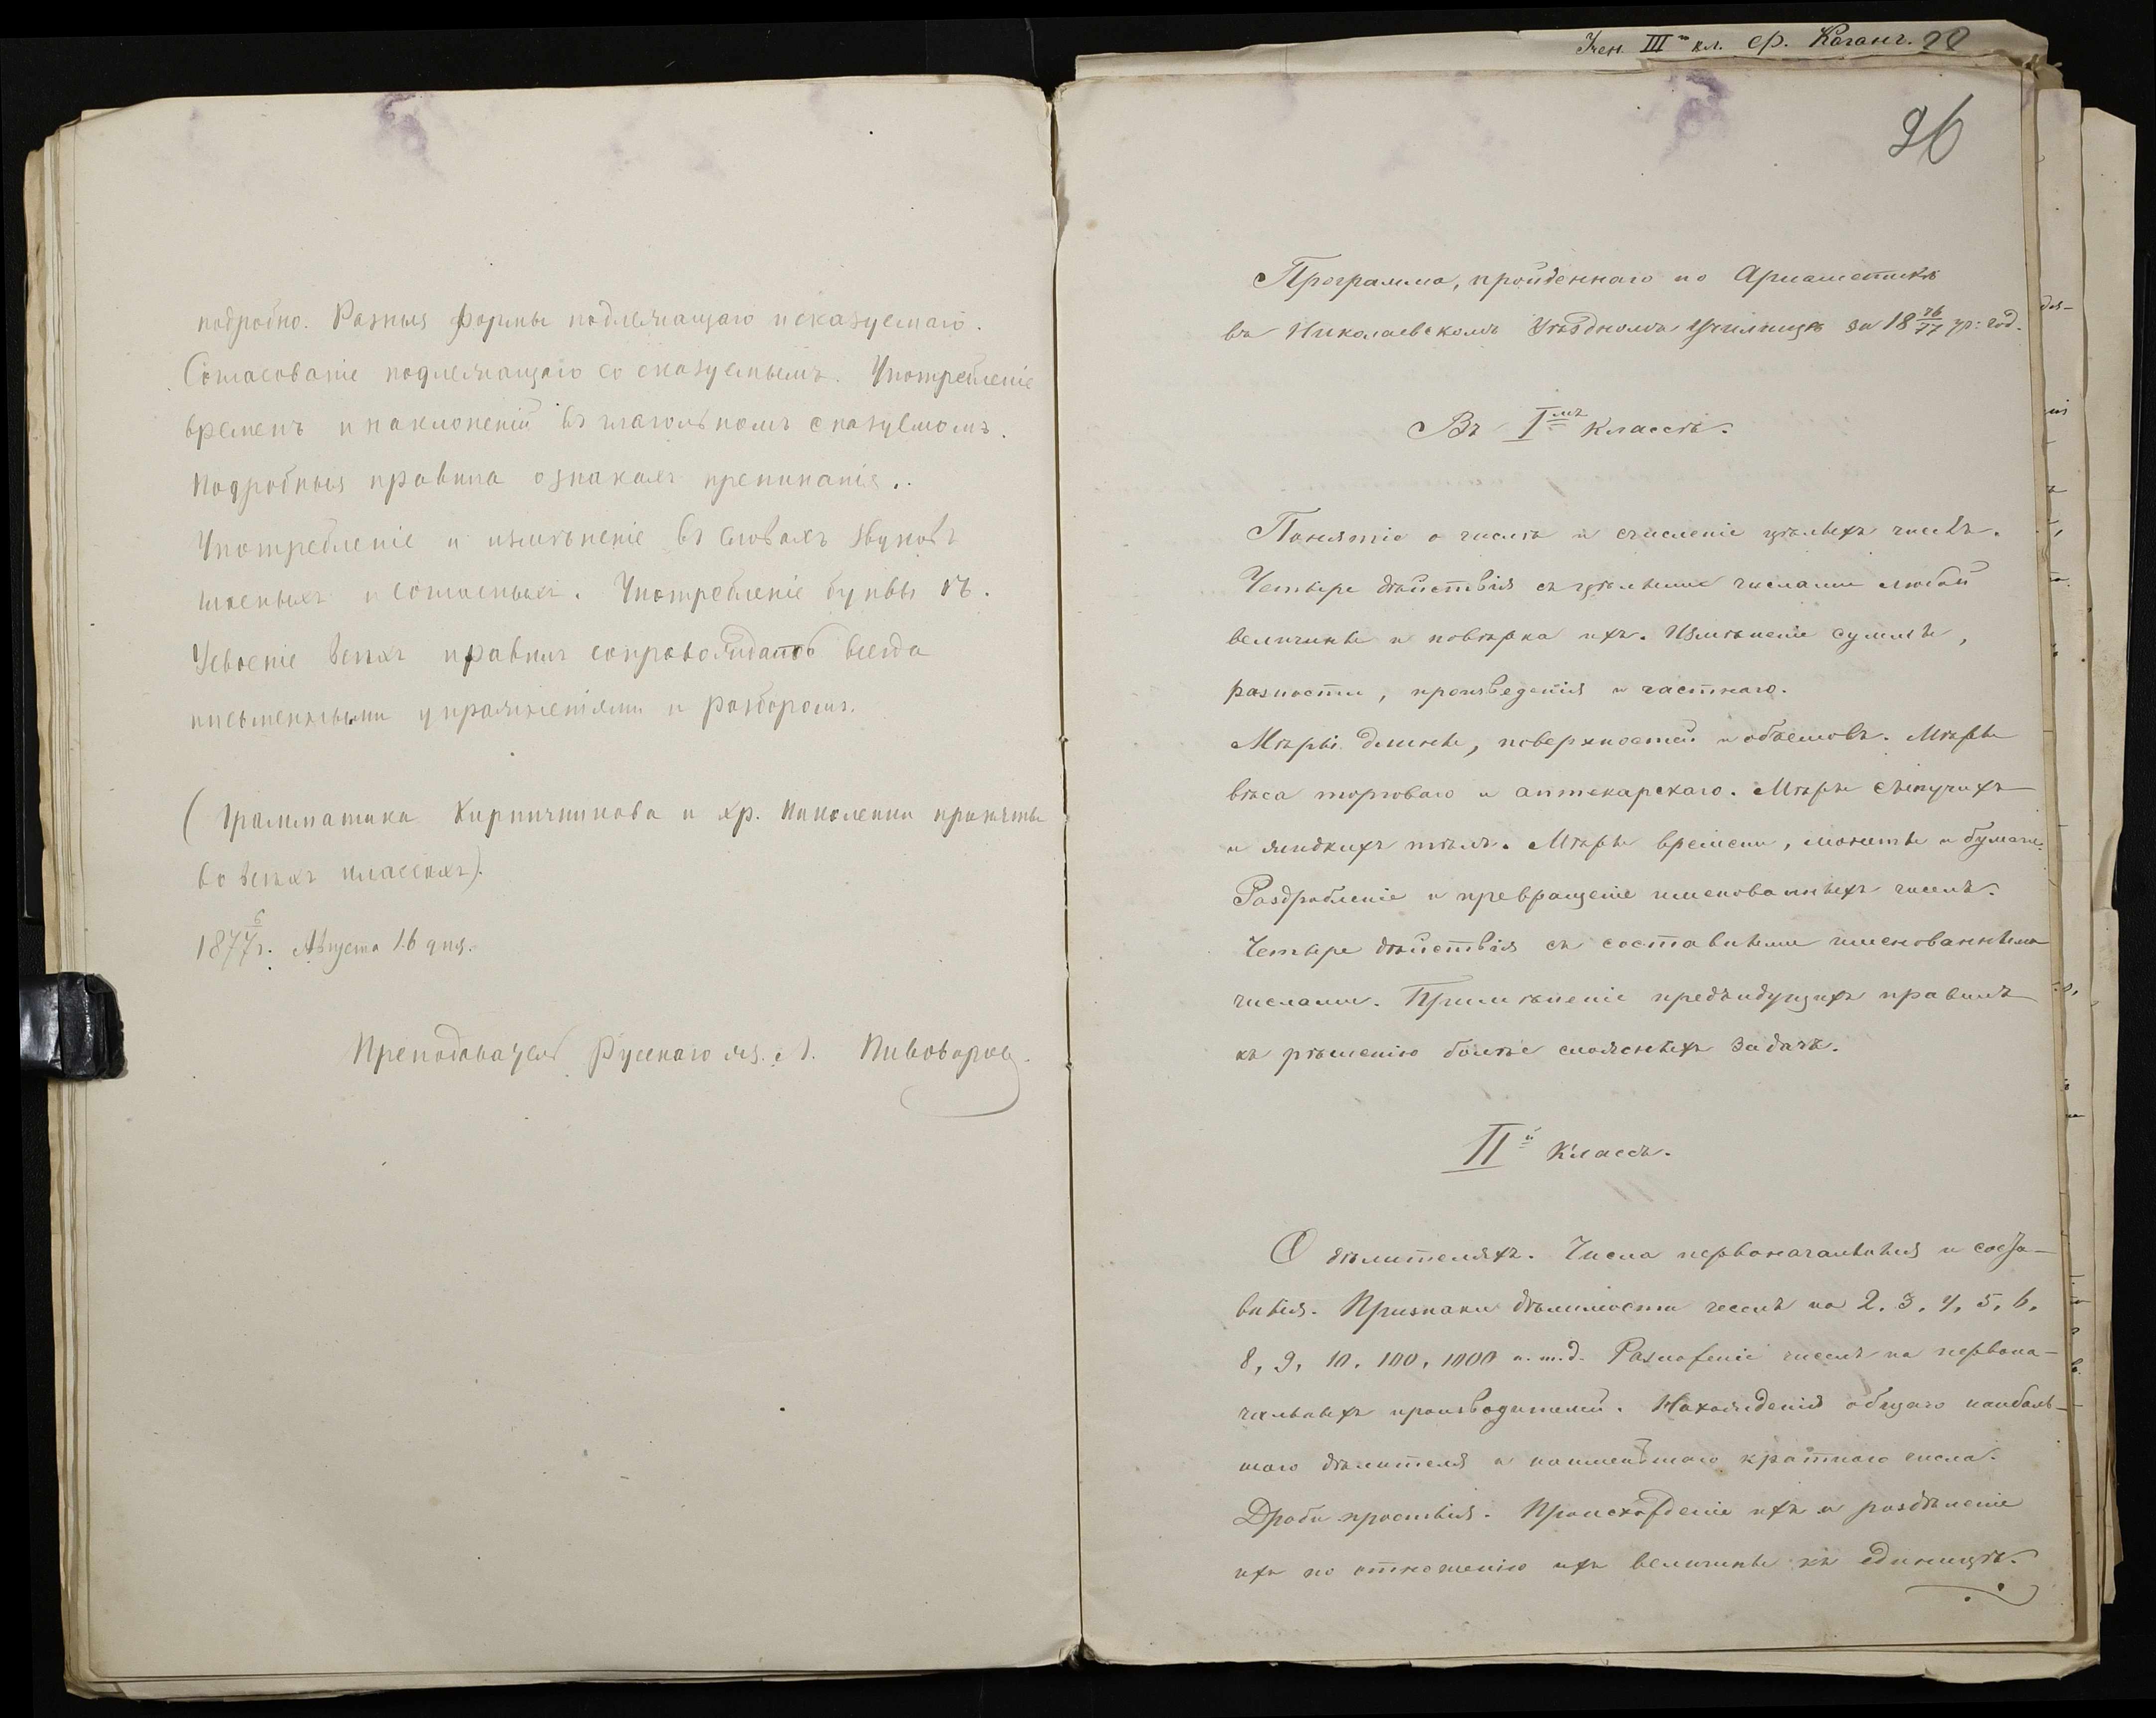 подробно. Разныя формы подлежащаго и сказуемаго.
Согласованіе подлежащаго со сказуемымъ. Употребленіе
временъ и наклоненій въ глагольномъ сказуемомъ.
Подробныя правила о знакахъ препинанія.
Употребленіе и измѣненіе въ словахъ звуковъ
гласныхъ и согласныхъ. Употребленіе буквы ѣ.
Усвоеніе всѣхъ правилъ сопровождалось всегда
письменными упражненіями и разборомъ.
(Грамматика Кирпичникова и хр. приняты
во всѣхъ классахъ).
1877 г. Августа 16 дня.
Преподаватель Русскаго яз. Л. Пивоваров
Учен. III кл. Ср. Каганъ. 22
26
Программа, пройденнаго по Ариѳметикѣ
въ Николаевскомъ Уѣздномъ Училищѣ за 18 76/77 уч: год.
Въ I мъ классѣ.
Понятіе о числѣ и счисленіе цѣлыхъ чиселъ.
Четыре дѣйствія съ цѣлыми числами любой
величины и повѣрка ихъ. Измѣненіе суммы,
разности, произведенія и частнаго.
Мѣры длины, поверхностей и объемовъ. Мѣры
вѣса торговаго и аптекарскаго. Мѣры сыпучихъ
и жидкихъ тѣлъ. Мѣры времени, монеты и бумаги.
Раздробленіе и превращеніе именованныхъ чиселъ.
Четыре дѣйствія съ составными именованными
числами. Примѣненіе предъидущихъ правилъ
къ рѣшенію болѣе сложныхъ задачъ.
II й Классъ.
О дѣлителяхъ. Числа первоначальныя и соста-
вныя. Признаки дѣлимости чиселъ на 2, 3, 4, 5, 6,
8, 9, 10, 100, 1000 и. т. д. Разложеніе чиселъ на первона-
чальныхъ производителей. Нахожденія общаго наиболь-
шаго дѣлителя и наименьшаго кратнаго числа.
Дроби простыя. Происхожденіе ихъ и раздѣленіе
ихъ по отношенію ихъ величины къ единицѣ.